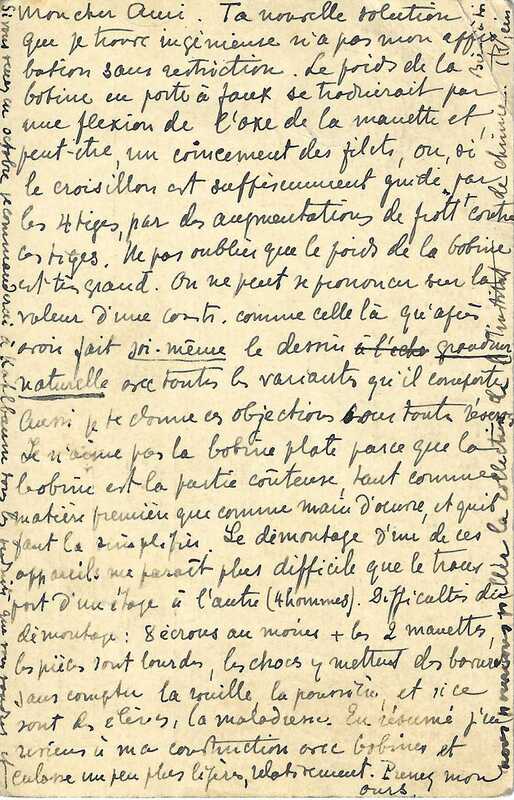 Mon cher Ami. Ta nouvelle solution
que je trouve ingénieuse n'a pas mon appro
bation sans restriction. Le poids de la
bobine en porte à faux se traduirait par
une flexion de l'axe de la manette et,
peut-être, un coincement des filets, ou, si
le croisillon est suffisamment guidé par
les 4 tiges, par des augmentations de frott^t contre
ces tiges. Ne pas oublier que le poids de la bobine
est très grand. On ne peut se prononcer sur la
valeur d'une constr. comme celle là qu'après
avoir fait soi-même le dessin à l'eche grandeur
naturelle avec toutes les variantes qu'il comporte
Aussi je te donne ces objections sous toutes réserves
Je n'aime pas la bobine plate parce que la
bobine est la partie coûteuse tant comme
matière première que comme main d'œuvre, et qu'il
faut la simplifier. Le démontage d'un de ces
appareils me paraît plus difficile que le trans
port d'un étage à l'autre (4 hommes). Difficultés du
démontage : 8 écrous au moins + les 2 manettes,
les pièces sont lourdes, les chocs y mettent des bavures
sans compter la rouille la poussière, et si ce
sont des élèves, la maladresse. En résumé j'en
reviens à ma construction avec bobines et
culasse un peu plus légères, relativement. Prenez mon
ours.
Si vous venez en octobre je commanderai à Kahlbaum tous les produits que vous voudrez et
nous pillerons la collection de l'Institut de chimie.
Bien à toi